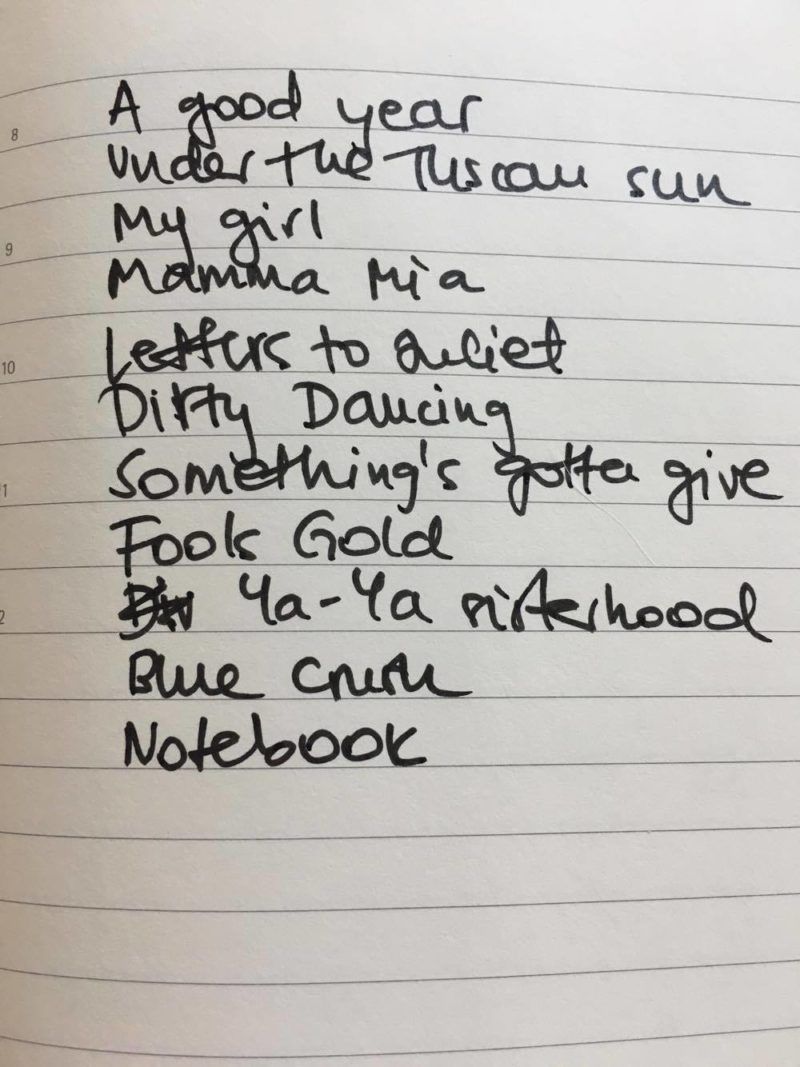 8
A good year
under the Tuscan sun
My girl
9
Mamma Mia
10
Letters to Juliet
Dirty Dancing
Something's gotta give
1
Fools Gold
2
Ya-Ya sisterhood
Blue Crush
Notebook